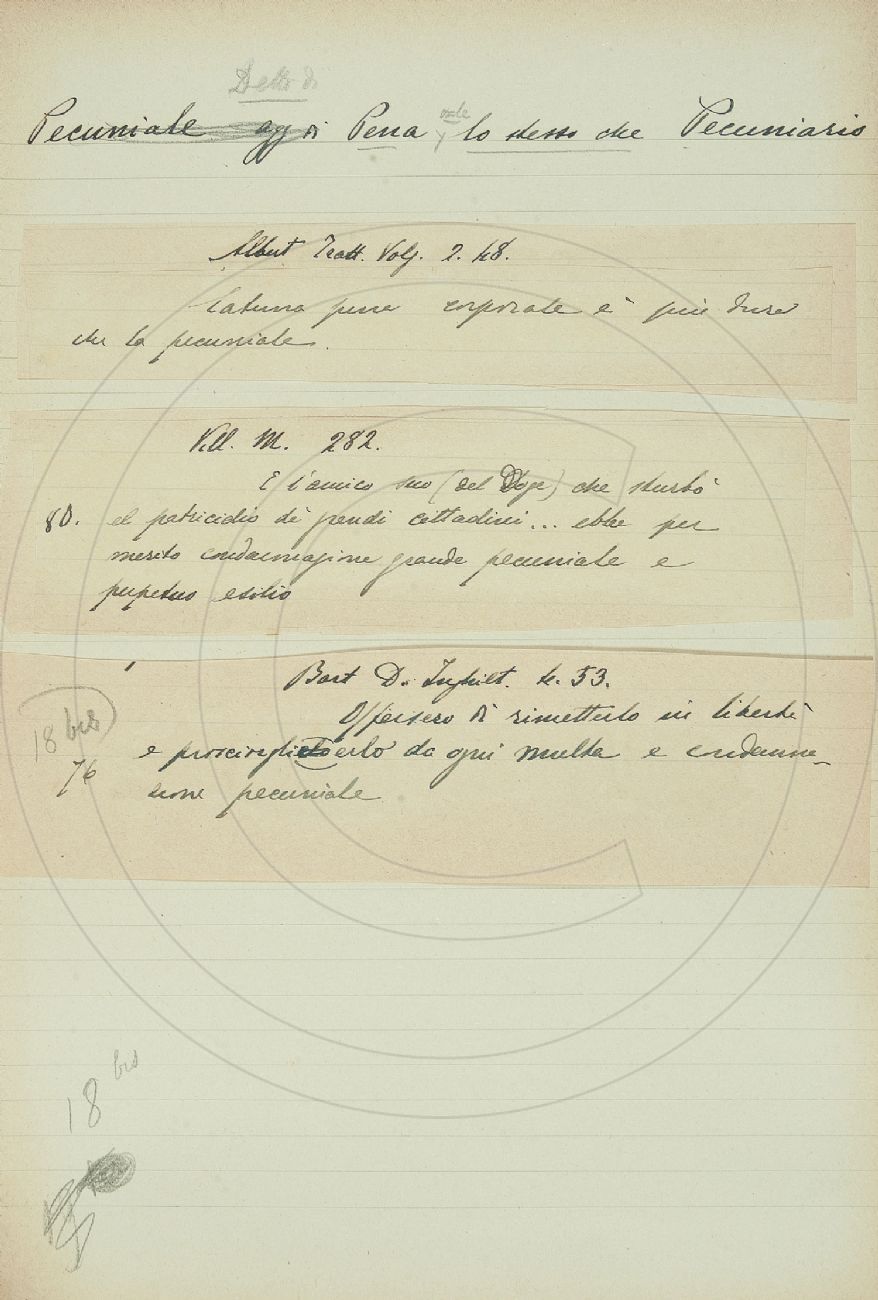 Detto di
Pecuniale agg di Pena vale lo stesso che Pecuniario
Albert Tratt. Volg. 2. 48.
pena corporale è più dura
che la pecuniale.
Vill. M. 282.
E l'amico suo (del Doge) che sturbò
80. el patricidio di grandi cittadini ... ebbe per
merito condannagione grande pecuniale e
perpetuo esilio
Bart D. 53.
18 bis Offersero di rimetterlo in libertà
76 e proscioglierlo da ogni multa e condanna-
zione pecuniale
18 bis